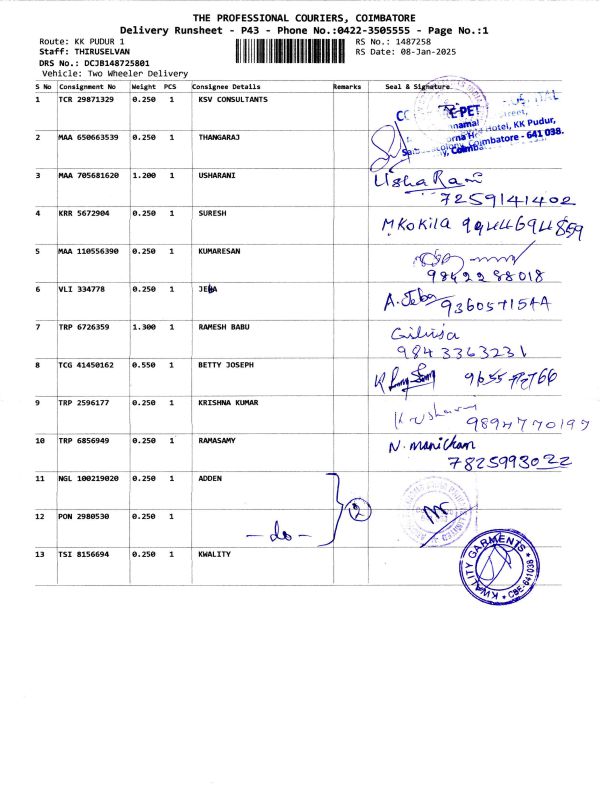 THE PROFESSIONAL COURIERS, COIMBATORE
Delivery Runsheet - P43 - Phone No.:0422-3505555 - Page No.:1
Route: KK PUDUR 1 RS No.: 1487258
Staff: THIRUSELVAN RS Date: 08-Jan-2025
DRS No.: DCJB148725801
Vehicle: Two Wheeler Delivery
S No Consignment No Weight PCS Consignee Details Remarks Seal & Signature
1 TCR 29871329 0.250 1 KSV CONSULTANTS
PET
Hotel, KK Pudur,
Coimbatore - 641 038.
2 MAA 650663539 0.250 1 THANGARAJ
3 MAA 705681620 1.200 1 USHARANI Usha Rani
7259141402
4 KRR 5672904 0.250 1 SURESH MKOKILA 9944694859
5 MAA 110556390 0.250 1 KUMARESAN
9842288018
6 VLI 334778 0.250 1 JEBA A.Jeba 9360571544
7 TRP 6726359 1.300 1 RAMESH BABU
9843363231
8 TCG 41450162 0.550 1 BETTY JOSEPH
9 TRP 2596177 0.250 1 KRISHNA KUMAR
9894770197
10 TRP 6856949 0.250 1 RAMASAMY N. manickam
7825993022
11 NGL 100219020 0.250 1 ADDEN
2
12 PON 2980530 0.250 1
- do -
13 TSI 8156694 0.250 1 KWALITY
KWALITY GARMENTS
CBE-641038